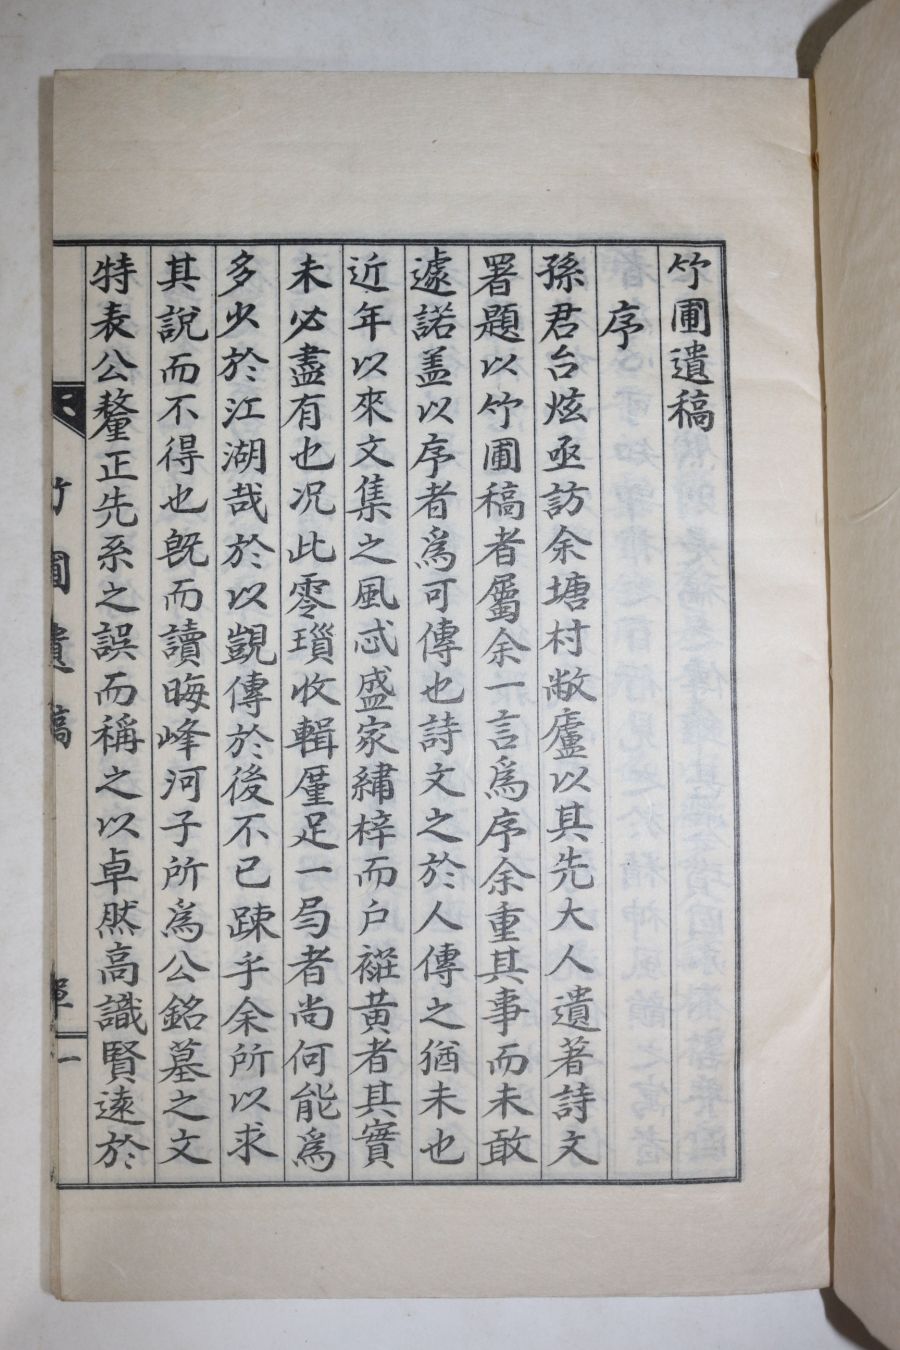 竹圃遺稿
序
孫君台炫亟訪余塘村敝廬以其先大人遺著詩文
署題以竹圃稿者屬余一言爲序余重其事而未敢
遽諾盖以序者爲可傳也詩文之於人傳之猶未也
近年以來文集之風忒盛家繡梓而户褾黃者其實
未必盡有也况此零瑣收輯厪足一局者尚何能爲
多少於江湖哉於以覬傳於後不已疎乎余所以求
其說而不得也旣而讀晦峰河子所爲公銘墓之文
特表公釐正先系之誤而稱之以卓然高識賢遠於
竹圃遺稿
一